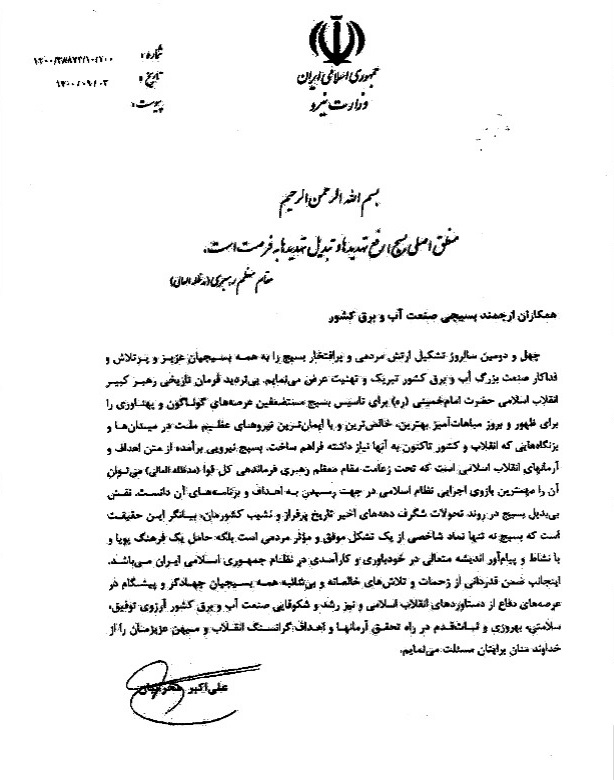 شماره :
۱۴۰۰/۳۸۸۷۲/۱۰/۷۰۰
تاریخ :
۱۴۰۰/۰۹/۰۳
پیوست :
جمهوری اسلامی ایران
وزارت نیرو
بسم الله الرحمن الرحیم
منطق اصلی بسیج رفع تهدیدها و تبدیل تهدیدها به فرصت است.
مقام معظم رهبری (مدظله العالی)
همکاران ارجمند بسیجی صنعت آب و برق کشور
چهل و دومین سالروز تشکیل ارتش مردمی و پرافتخار بسیج را به همه بسیجیان عزیز و پرتلاش و
فداکار صنعت بزرگ آب و برق کشور تبریک و تهنیت عرض می‌نمایم. بی‌تردید فرمان تاریخی رهبر کبیر
انقلاب اسلامی حضرت امام‌خمینی (ره) برای تاسیس بسیج مستضعفین عرصه‌های گوناگون و پهناوری را
برای ظهور و بروز مباهات‌آمیز بهترین، خالص‌ترین و با ایمان‌ترین نیروهای عظیم ملت در میدان‌ها و
بزنگاه‌هایی که انقلاب و کشور تاکنون به آنها نیاز داشته فراهم ساخت. بسیج نیرویی برآمده از متن اهداف و
آرمانهای انقلاب اسلامی است که تحت زعامت مقام معظم رهبری فرماندهی کل قوا (مدظله العالی) می‌توان
آن را مهمترین بازوی اجرایی نظام اسلامی در جهت رسیدن به اهداف و برنامه‌های آن دانست. نقش
بی‌بدیل بسیج در روند تحولات شگرف دهه‌های اخیر تاریخ پرفراز و نشیب کشورمان، بیانگر این حقیقت
است که بسیج نه تنها نماد شاخصی از یک تشکل موفق و مؤثر مردمی است بلکه حامل یک فرهنگ پویا و
با نشاط و پیام‌آور اندیشه متعالی در خودباوری و کارآمدی در نظام جمهوری اسلامی ایران می‌باشد.
اینجانب ضمن قدردانی از زحمات و تلاش‌های خالصانه و بی‌شائبه همه بسیجیان جهادگر و پیشگام در
عرصه‌های دفاع از دستاوردهای انقلاب اسلامی و نیز رشد و شکوفایی صنعت آب و برق کشور آرزوی توفیق،
سلامتی، بهروزی و ثبات‌قدم در راه تحقق آرمانها و اهداف گرانسنگ انقلاب و میهن عزیزمان را از
خداوند منان برایتان مسئلت می‌نمایم.
علی‌اکبر محرابیان